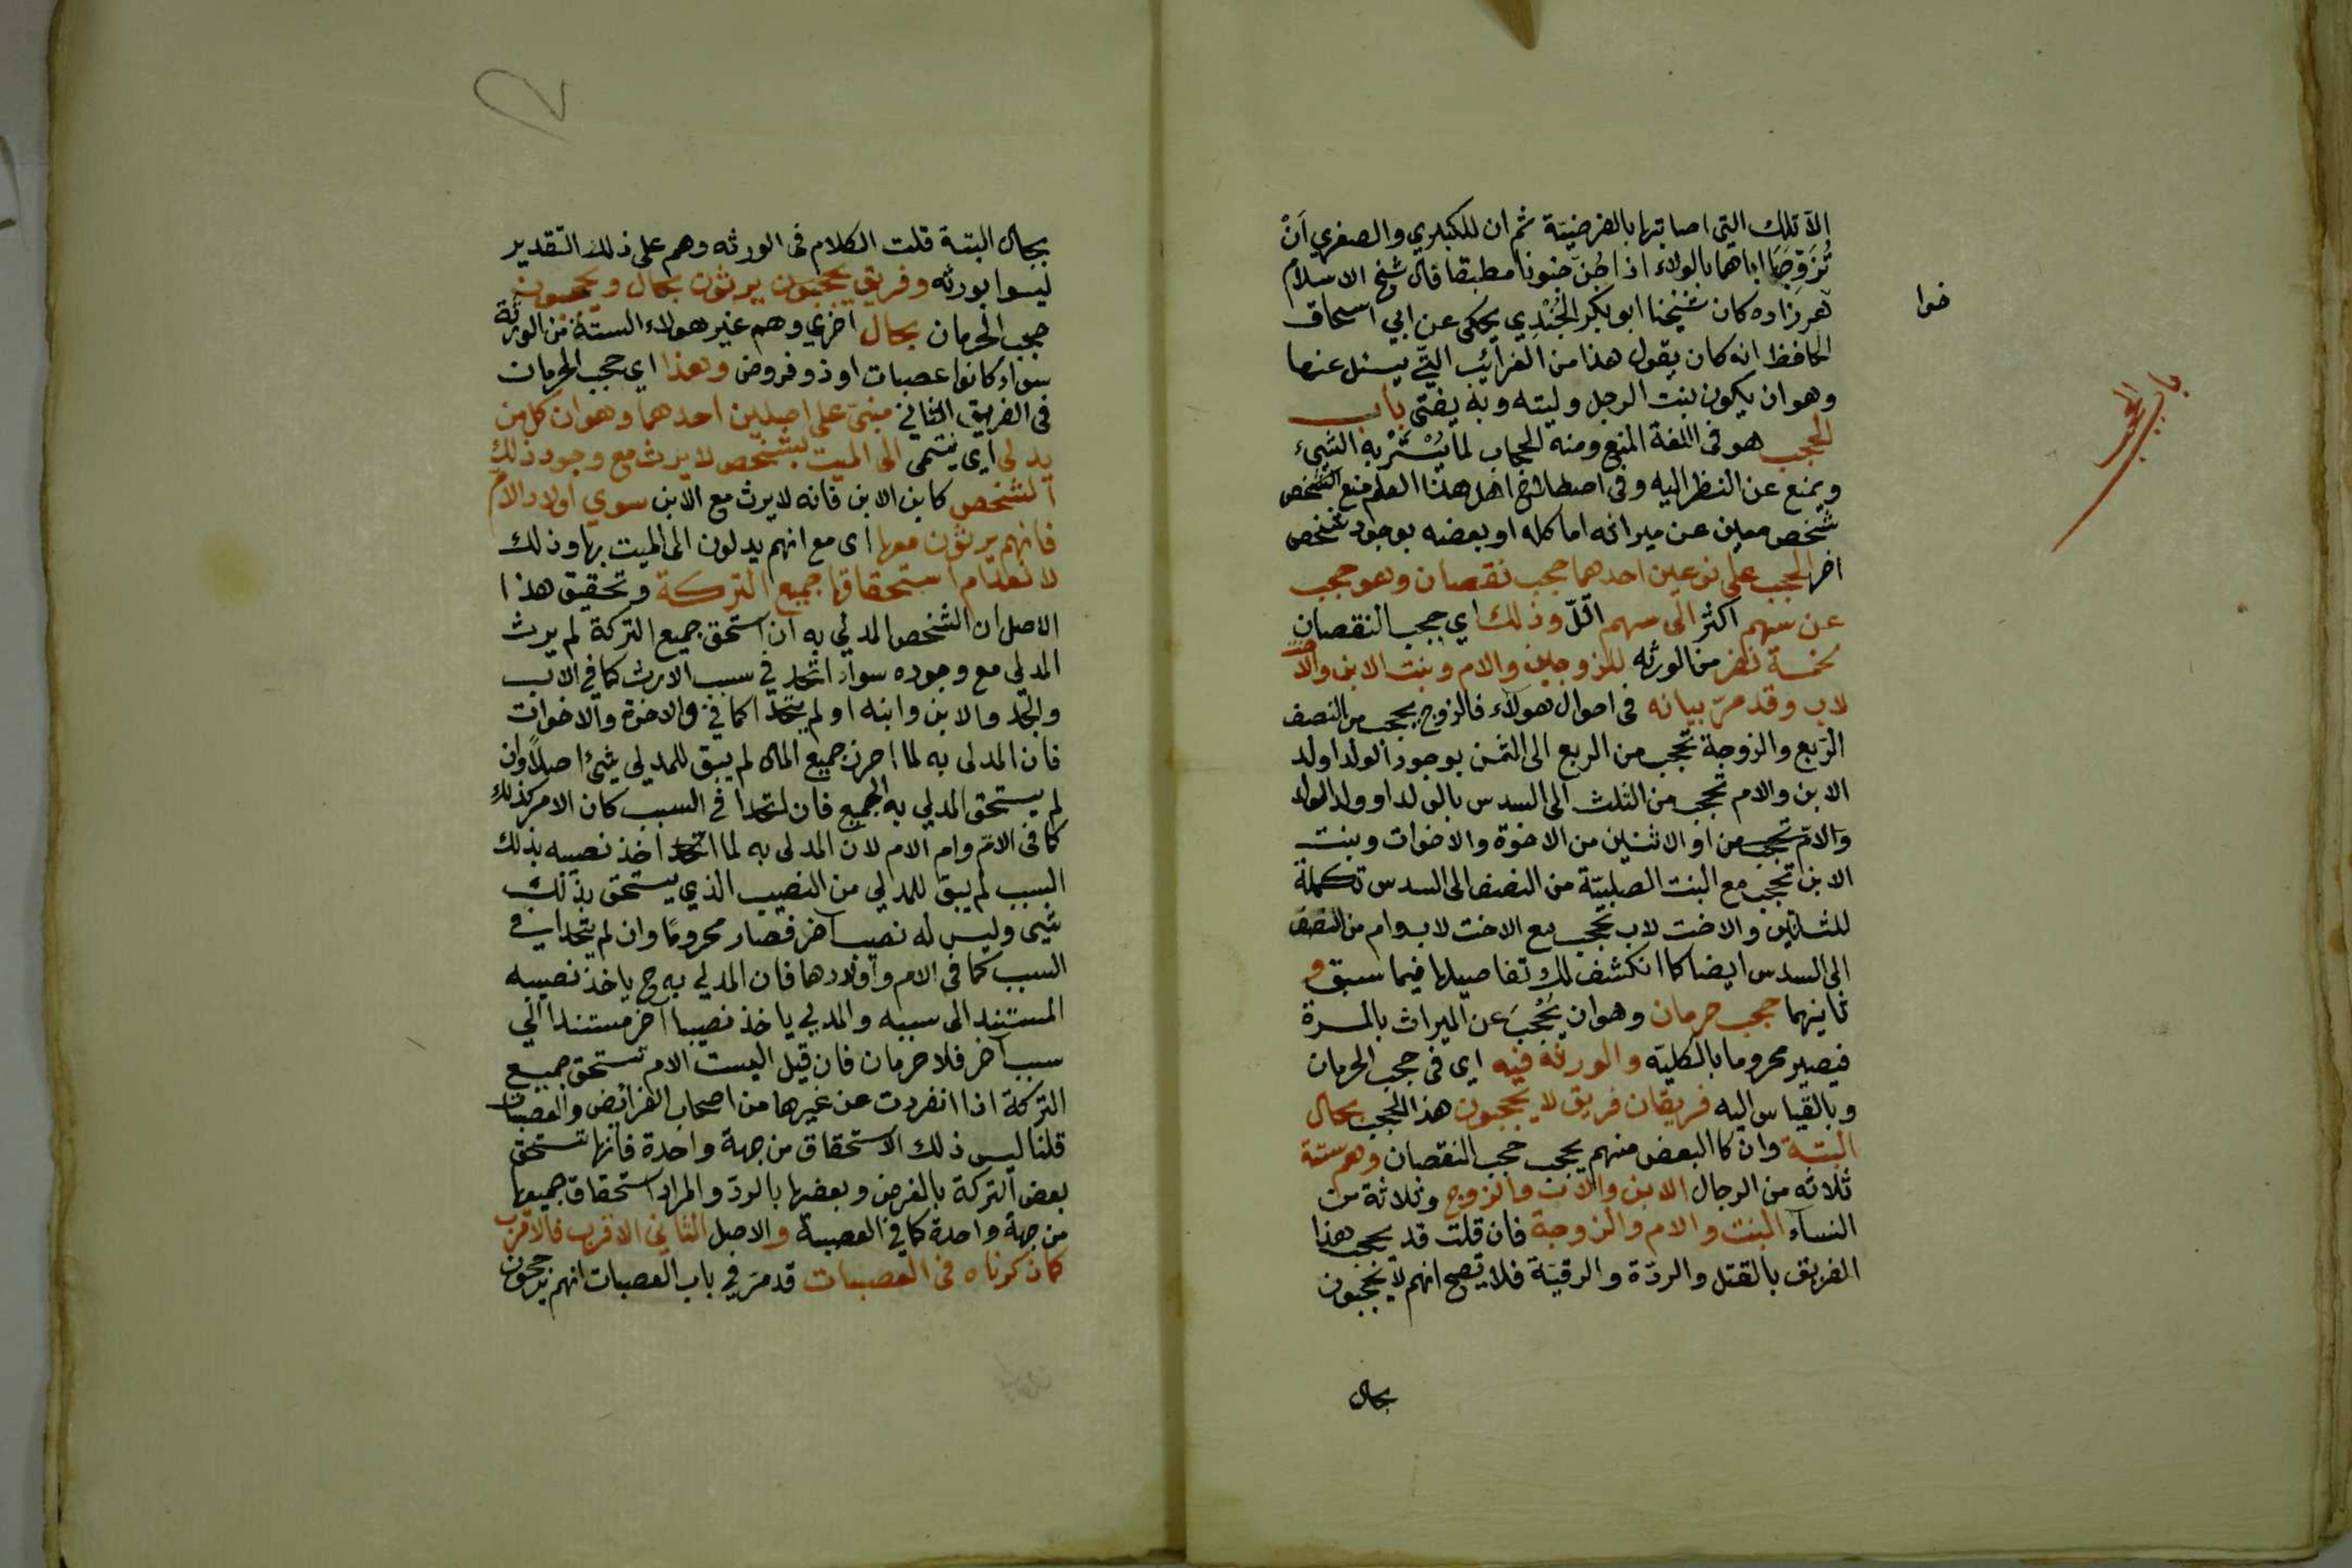 الا تلك التي اصابتها بالفرضية ثم ان للكبري والصغري اَنْ
تُزَوِّجَا اباهما بالولاء اذا جُنَّ جنونا مطبقا قال شيخ الاسلام
خوا
هرزاده كان شيخنا ابو بكر الخُجَنْدِي يحكى عن ابي اسحاق
الحافظ انه كان يقول هذا من الغرائب التي يسئل عنها
وهو ان يكون بنت الرجل وليته وبه يفتى باب
باب الحجب
الحجب هو في اللغة المنع ومنه الحجاب لما يُسْتَرُ به الشيء
ويمنع عن النظر اليه وفي اصطلاح اهل هذا العلم منع الشخص
شخص معين عن ميراثه اما كله او بعضه بوجود شخص
اخر الحجب على نوعين احدهما حجب نقصان وهو حجب
عن سهم اكثر الى سهم اقلّ وذلك اي حجب النقصان
لخمسة نفر من الورثه للزوجين والام وبنت الابن والاخت
لاب وقد مرّ بيانه في احوال هولاء فالزوج يحجب من النصف
الرّبع والزوجة تحجب من الربع الى الثمن بوجود الولد او ولد
الابن والام تحجب من الثلث الى السدس بالولد او ولد الولد
والامّ تحجب من او الاثنين من الاخوة والاخوات وبنت
الابن تحجب مع البنت الصلبيّة من النصف الى السدس تكملة
للثلثين والاخت لاب تحجب مع الاخت لاب وام من النصف
الى السدس ايضا كما انكشف لك تفاصيلها فيما سبق و
ثانيهما حجب حرمان وهو ان يُحْجَبَ عن الميراث بالمرة
فيصير محروما بالكليّه والورثه فيه اى في حجب الحرمان
وبالقياس اليه فريقان فريق لا يحجبون هذا الحجب بحال
البتة وان كا البعض منهم يحجب حجب النقصان وهم ستة
ثلاثه من الرجال الابن والاب والزوج وثلاثة من
النسآء البنت والام والزوجة فان قلت قد يحجب هذا
الفريق بالقتل والردّة والرقيّة فلا يصح انهم لا يحجبون
بحال
بحال البتة قلت الكلام في الورثه وهم على ذلك التقدير
ليسوا بورثه وفريق يحجبون يرثون بحال ويحجبون
حجب الحرمان بحال اخري وهم غير هولاء الستة من الورثة
سواء كانوا عصبات او ذو فروض وهذا اى حجب الحرمان
في الفريق الثاني مبنىّ على اصلين احدهما وهو ان كل من
يدلى اى ينتمى الى الميت بشخص لا يرث مع وجود ذلك
الشخص كابن الابن فانه لا يرث مع الابن سوي اولاد الام
فانهم يرثون معها اى مع انهم يدلون الى الميت بها وذلك
لانعدام استحقاقها جميع التركة وتحقيق هذا
الاصل ان الشخص المدلي به ان استحق جميع التركة لم يرث
المدلى مع وجوده سواء اتحدا في سبب الارث كما في الاب
والجد والابن وابنه او لم يتحدا كما في والاخوة والاخوات
فان المدلى به لما احرز جميع المال لم يبق للمدلي شئ اصلاً وان
لم يستحق المدلي به الجميع فان اتحدا في السبب كان الامر كذلك
كما في الامّ وام الام لان المدلى به لما اتحد اخذ نصيبه بذلك
السبب لم يبق للمدلي من النصيب الذي يستحق بذلك
شيى وليس له نصيب اخر فصار محرومًا وان لم يتحدا في
السبب كما في الام واولادها فان المدلي به ح ياخذ نصيبه
المستند الى سببه والمدلي ياخذ نصيبا آخر مستندا الي
سبب آخر فلا حرمان فان قيل اليست الام تستحق جميع
التركة اذا انفردت عن غيرها من اصحاب الفرائض والعصبات
قلنا ليس ذلك الاستحقاق من جهة واحدة فانها تستحق
بعض التركة بالفرض وبعضها بالردّ والمراد استحقاق جميعها
من جهة واحدة كما في العصبة والاصل الثاني الاقرب فالاقرب
كما ذكرناه في العصبات قد مرّ في باب العصبات انهم يرجحون